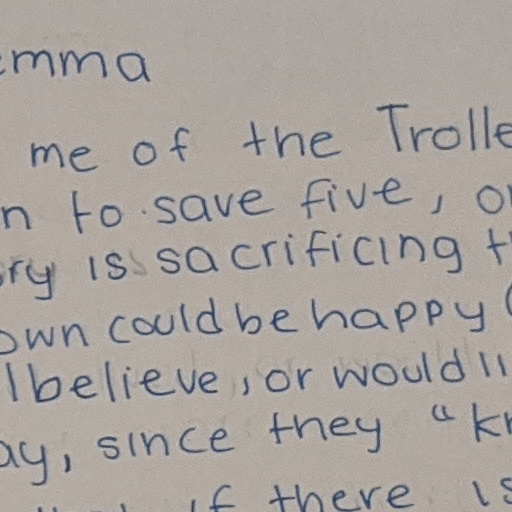 emma
me of the Trolle
n to save five, or
ory is sacrificing t
own could be happy (
I believe, or would li
ay, since they “kn
if there is